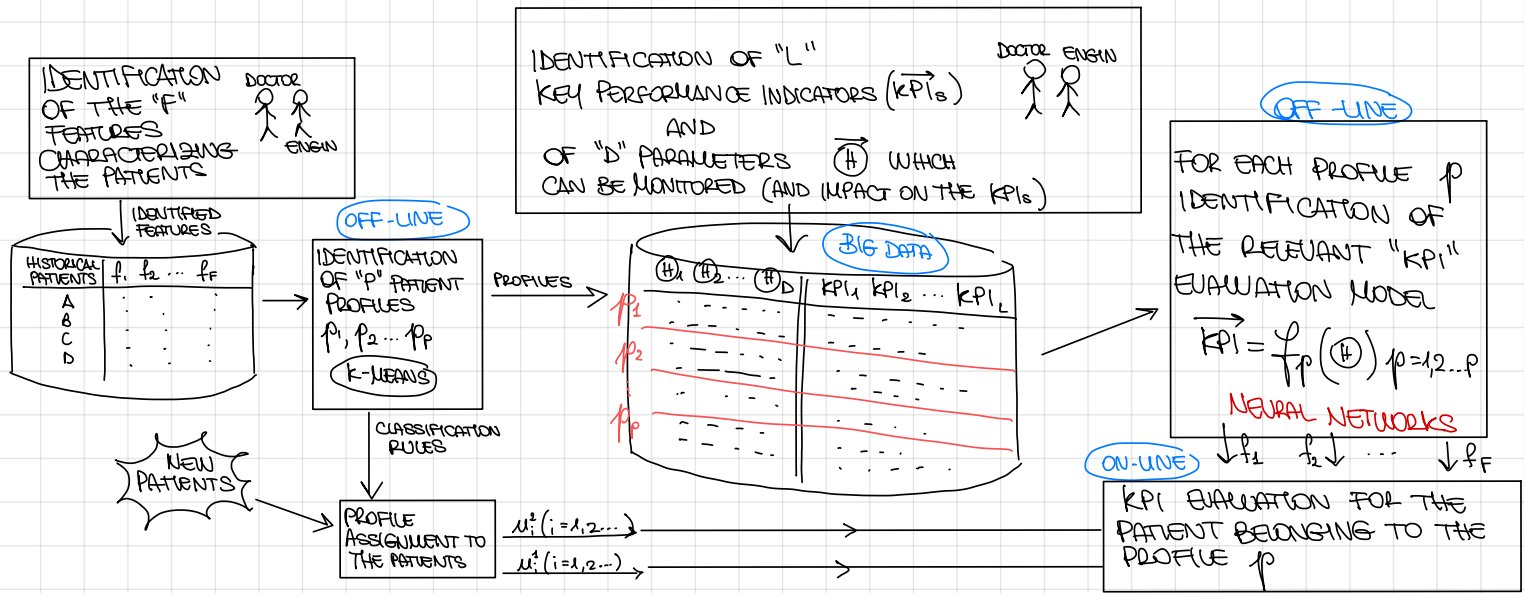 IDENTIFICATION
OF THE "F"
FEATURES
CHARACTERIZING
THE PATIENTS
DOCTOR
ENGIN
IDENTIFIED
FEATURES
HISTORICAL
PATIENTS f₁ f₂ ... f_F
A
B
C
D
OFF-LINE
IDENTIFICATION
OF "P" PATIENT
PROFILES
p₁, p₂ ... p_P
K-MEANS
PROFILES
CLASSIFICATION
RULES
NEW
PATIENTS
PROFILE
ASSIGNMENT TO
THE PATIENTS
IDENTIFICATION OF "L"
KEY PERFORMANCE INDICATORS (KPIs)
AND
OF "D" PARAMETERS Ⓗ WHICH
CAN BE MONITORED (AND IMPACT ON THE KPIs)
DOCTOR ENGIN
BIG DATA
Ⓗ₁ Ⓗ₂ ... Ⓗ_D KPI₁ KPI₂ ... KPI_L
p₁
p₂
p_P
(i=1,2...)
(i=1,2...)
OFF-LINE
FOR EACH PROFILE p
IDENTIFICATION OF
THE RELEVANT "KPI"
EVALUATION MODEL
KPI = f_p (Ⓗ) p=1,2...P
NEURAL NETWORKS
f₁ f₂ ... f_F
ON-LINE
KPI EVALUATION FOR THE
PATIENT BELONGING TO THE
PROFILE p